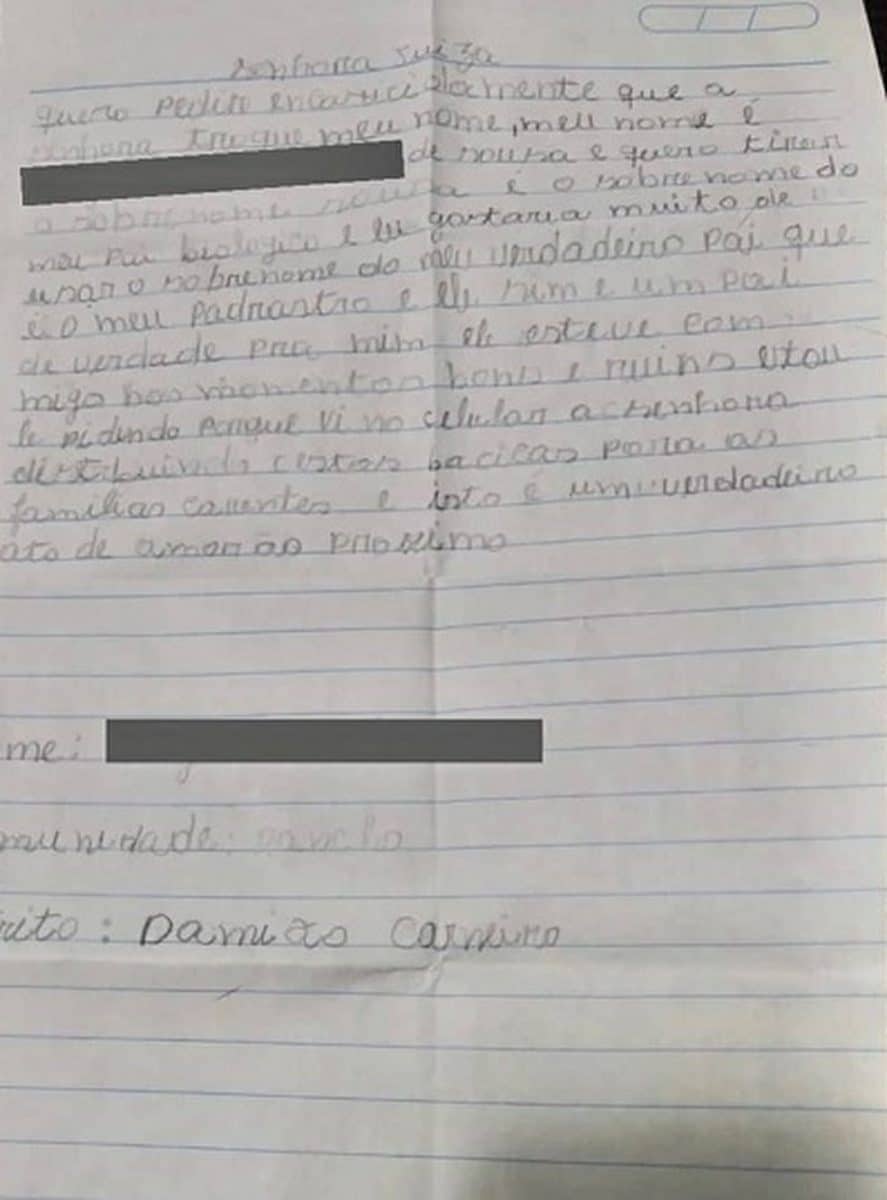 senhora Juiza
quero pedire encarecidamente que a
senhora troque meu nome, meu nome é
de sousa e quero tirar
o sobrenome sousa é o sobrenome do
meu pai biologico e eu gostaria muito de
usar o sobrenome do meu verdadeiro pai que
é o meu padrastro e ele sim e um pai
de verdade pra mim ele esteve com
migo nos momentos bons e ruins estou
le pidindo porque vi no celular a senhora
distribuindo cestas bacicas para as
familias carentes e isto e um verdadeiro
ato de amor ao proximo
me:
munidade:
rito: Damião Carneiro